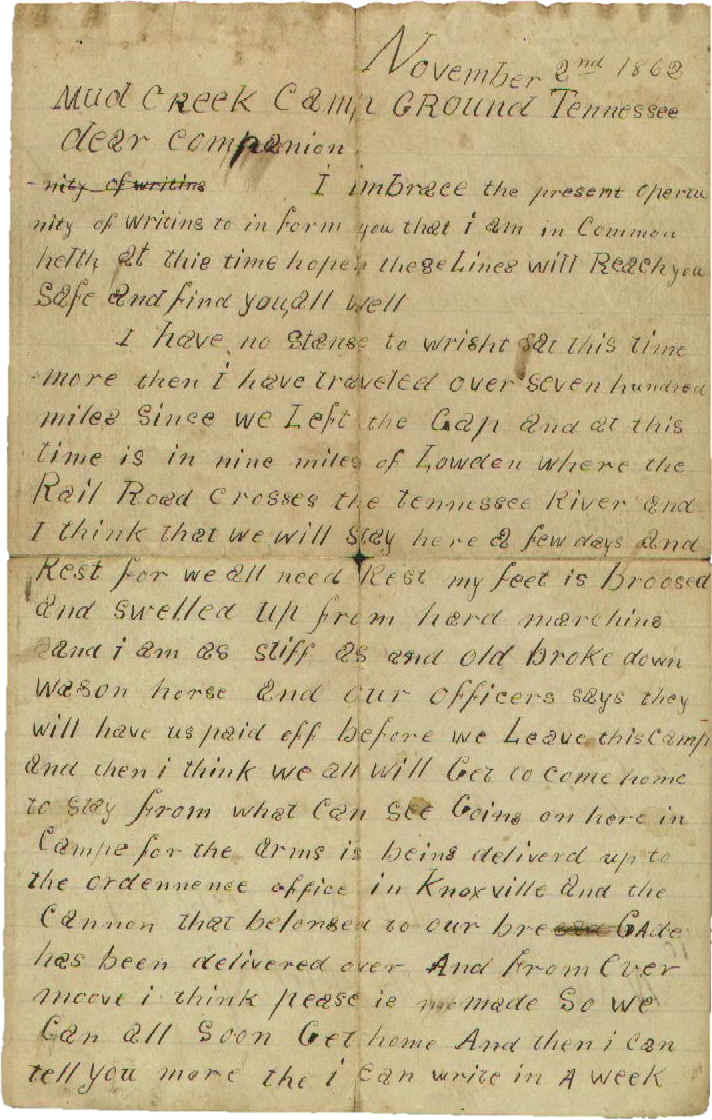 November 2nd 1862
Mud Creek Camp GROund Tennessee
dear companion
nity of writing I imbrace the present opertu
nity of writing to in form you that i am in Common
helth at this time hopeg these Lines will Reach you
Safe and find you all well
I have no stange to wright at this time
more then i have traveled over seven hundred
miles Since we Left the Gap and at this
time is in nine miles of Lowden where the
Rail Road crosses the tennessee River and
I think that we will stay here a few days and
Rest for we all need Rest my feet is broosed
and swelled up from hard marching
and i am as stiff as and old broke down
wagon horse and our officers says they
will have us paid off before we Leave this Camp
and then i think we all will Get to come home
to stay from what Can see Going on here in
Camps for the arms is being deliverd up to
the ordennence office in Knoxville and the
Cannon that belonged to our bre GAde
has been delivered over And from Ever
moove i think pease is made So we
Can all Soon Get home And then i can
tell you more the i can write in A week